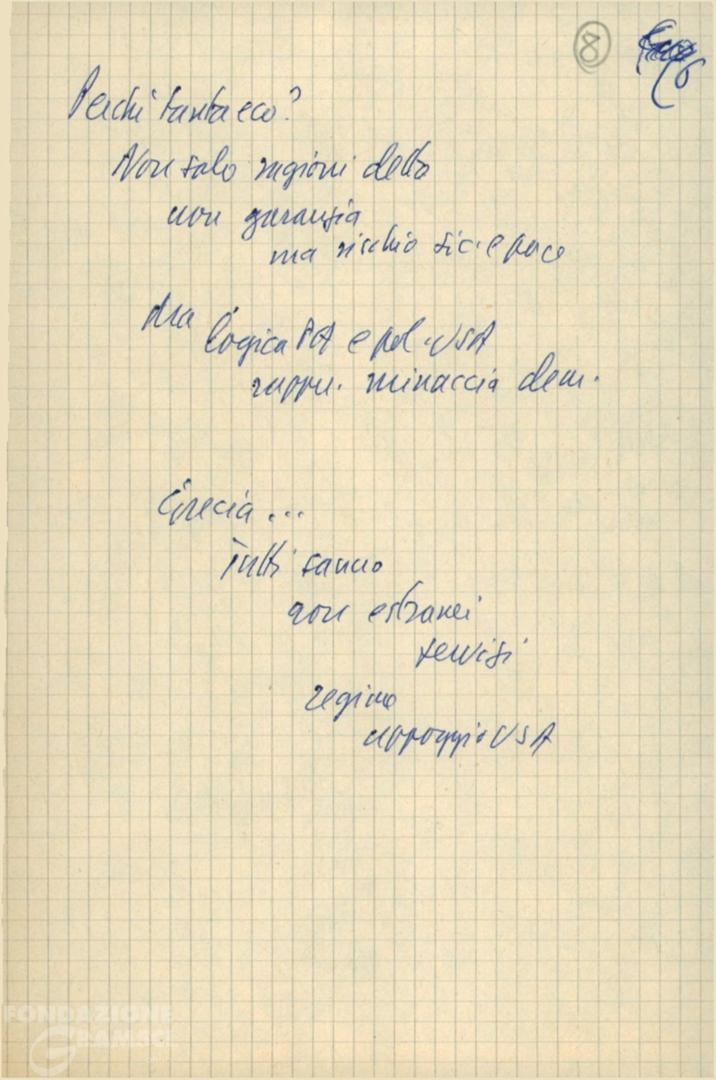 8
6
Perché tanta eco?
Non solo ragioni della
non garanzia
ma rischio sic. e pace
Ma
logica PA e pol. USA
rappr. minaccia dem.
Grecia ...
Tutti sanno
non estranei
servizi
regime
appoggio USA
FONDAZIONE
GRAMSCI